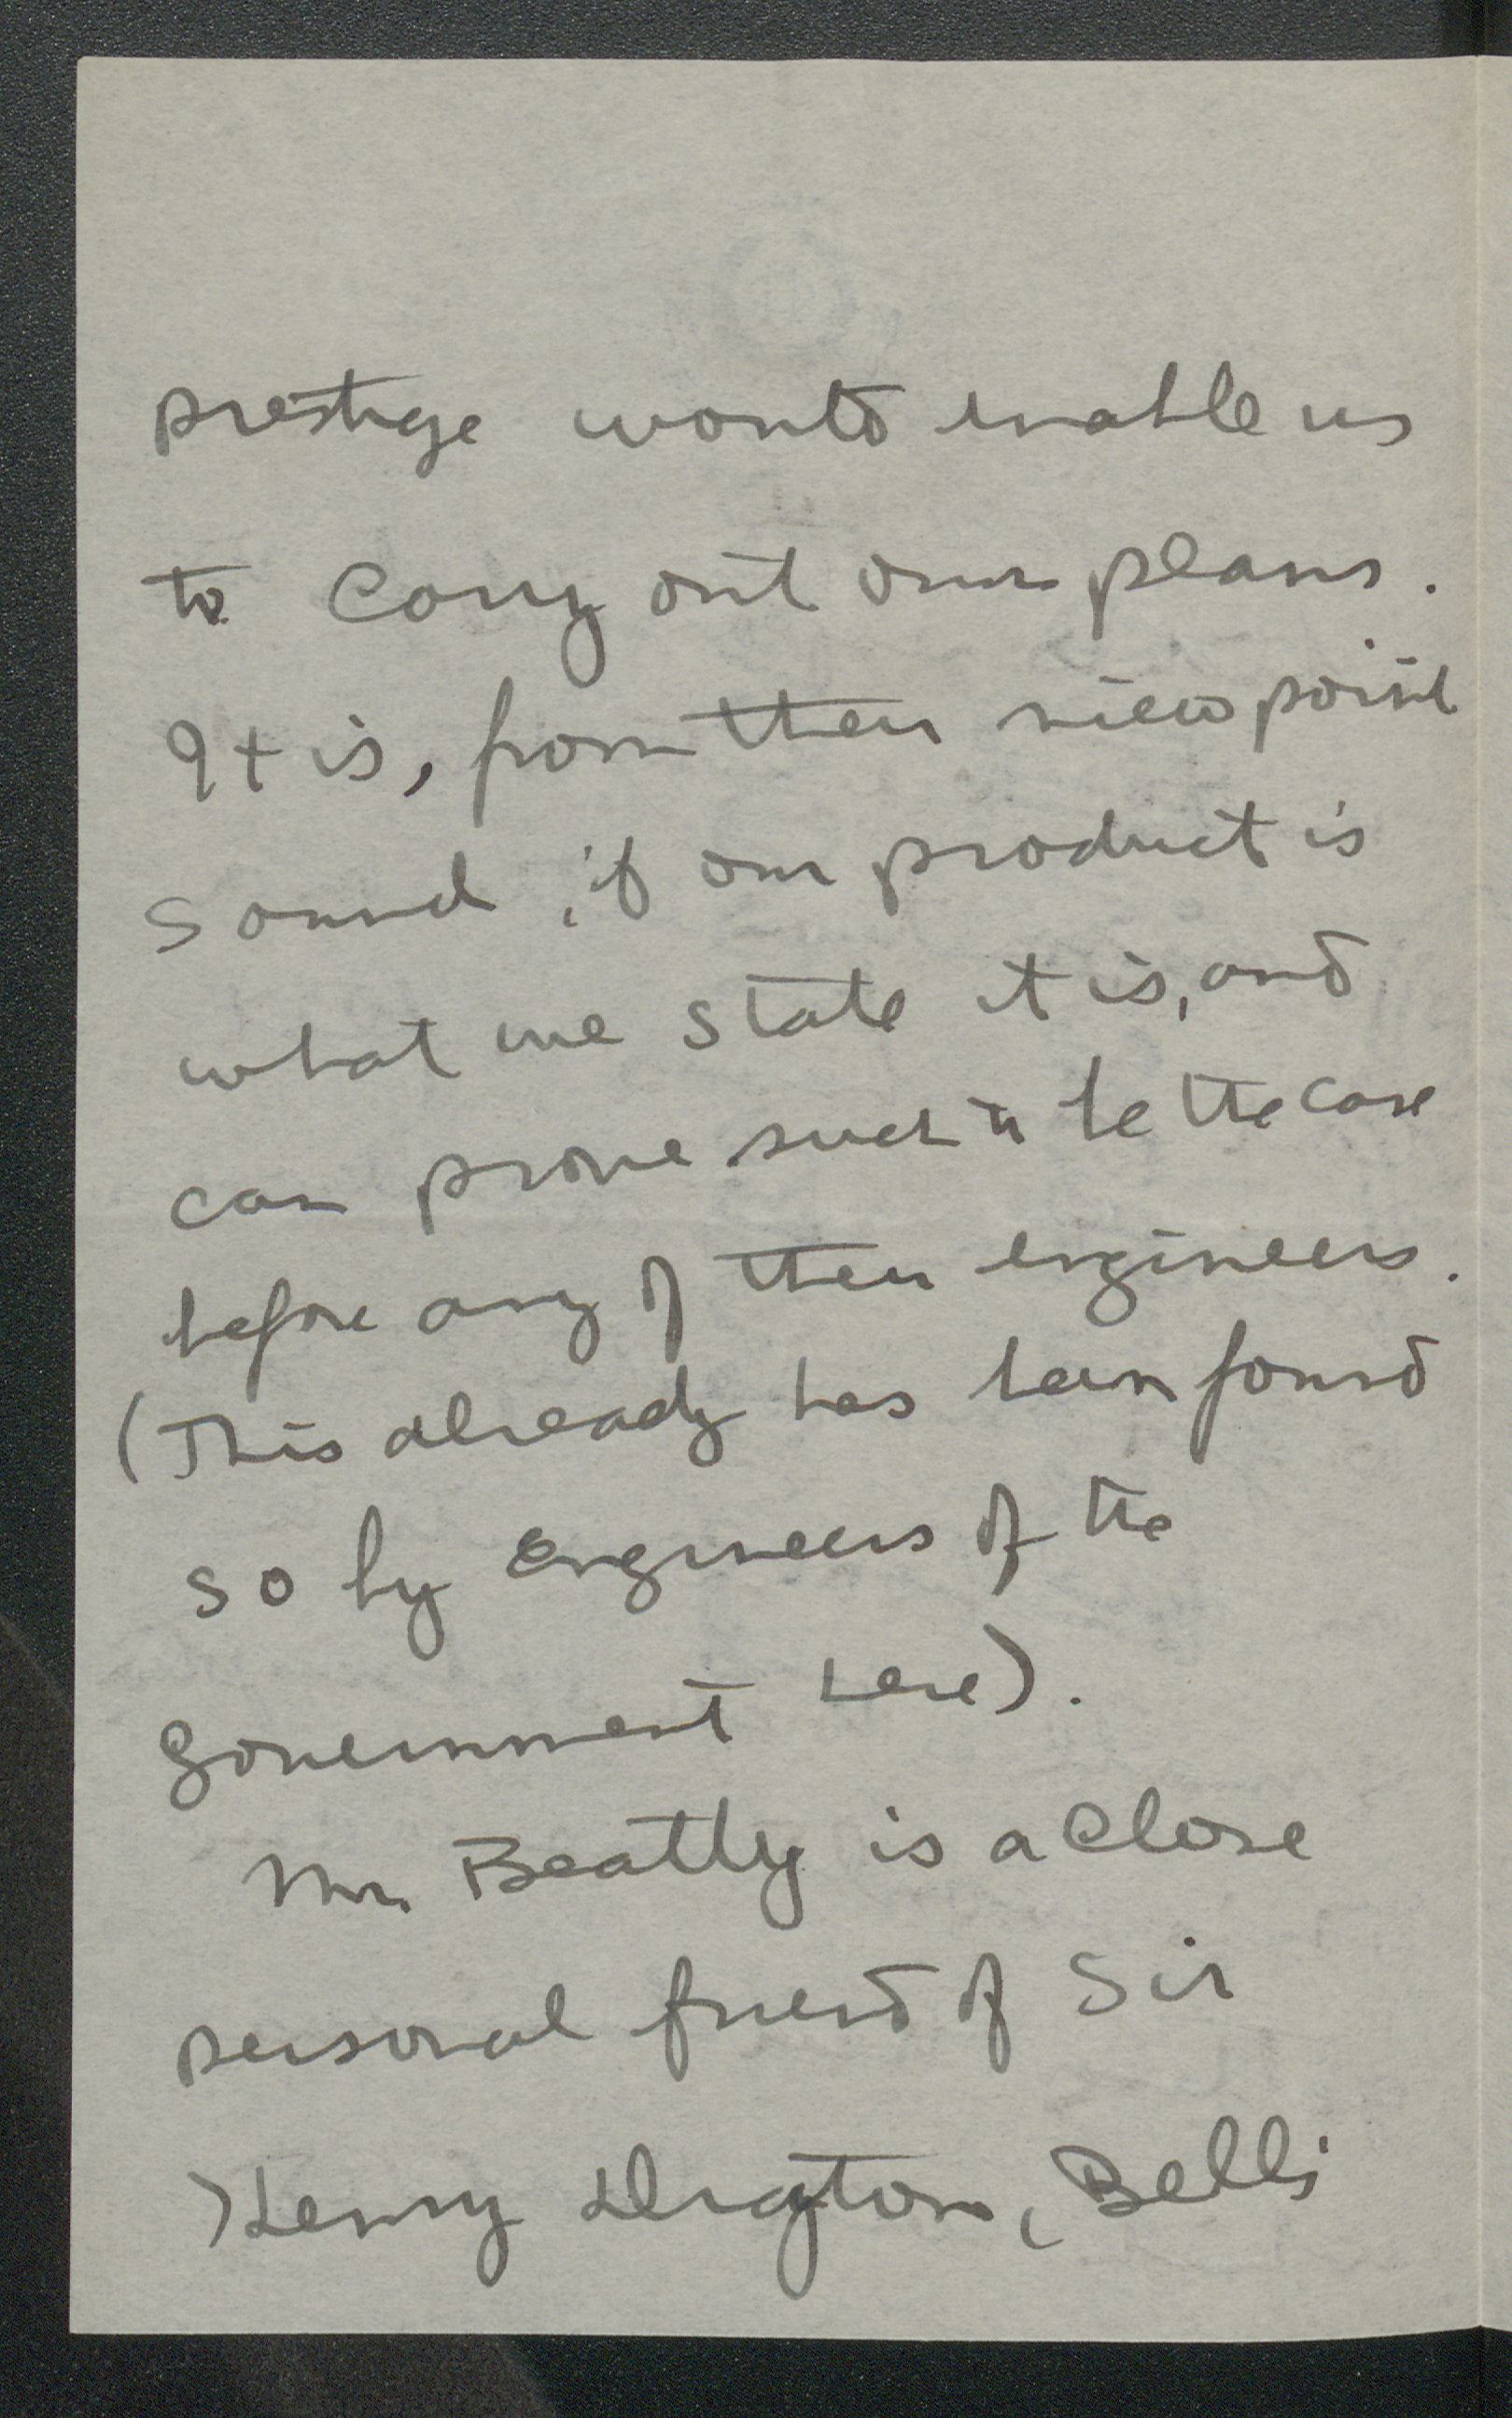 prestige would enable us
to carry out our plans.
It is, from their viewpoint
sound, if our product is
what we state it is, and
can prove such to be the case
before any of their engineers.
(This already has been found
so by engineers of the
government here).
Mr. Beatty is a close
personal friend of Sir
Henry Drayton, Bell's